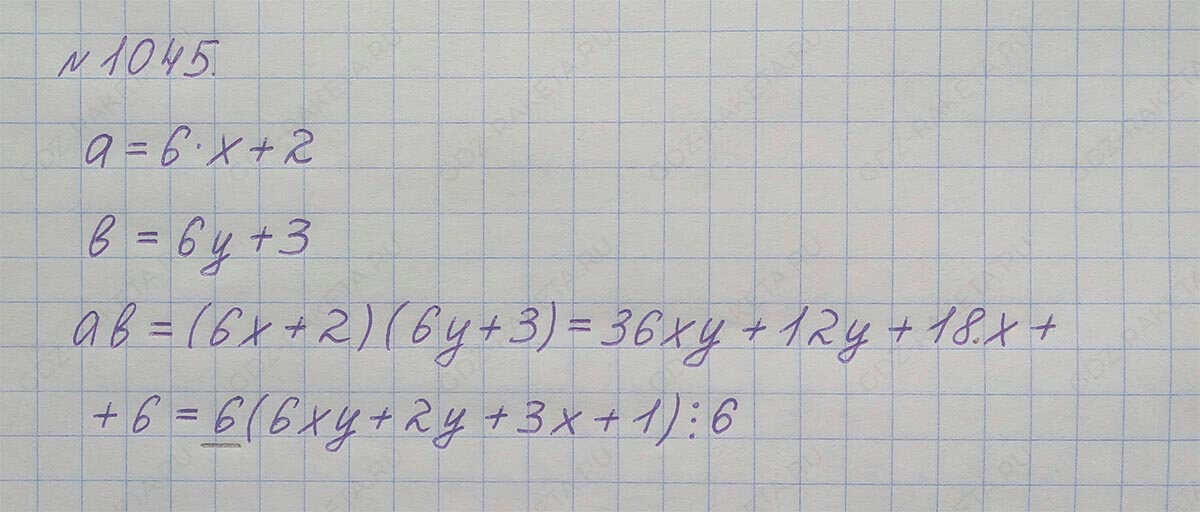 № 1045.
a = 6 · x + 2
в = 6y + 3
aв = (6x + 2)(6y + 3) = 36xy + 12y + 18.x +
+ 6 = 6(6xy + 2y + 3x + 1) ⋮ 6
GDZ-RAKETA.RU